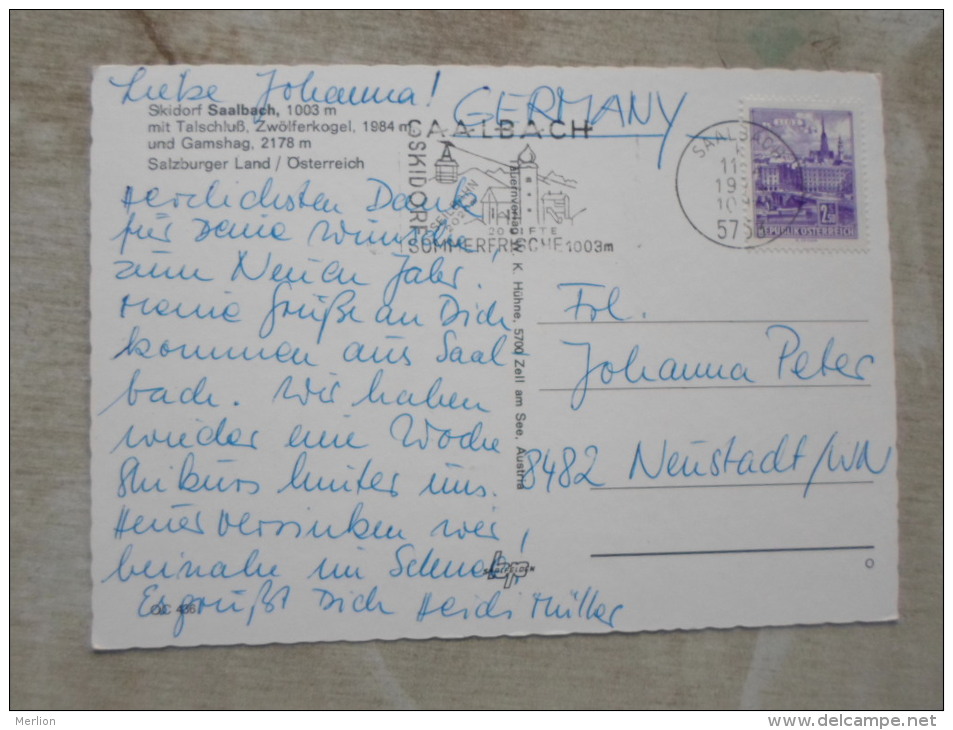 Liebe Johanna!
GERMANY
Skidorf Saalbach, 1003 m
mit Talschluß, Zwölferkogel, 1984 m,
und Gamshag, 2178 m
Salzburger Land / Österreich
Herzlichsten Dank
für Deine Wünsche
zum Neuen Jahr.
Meine Grüße an Dich
kommen aus Saal
bach. Wir haben
wieder eine Woche
Skikurs hinter uns.
Heuer versinken wir
beinahe im Schnee!
Es grüßt Dich Heidi Müller
SAALBACH
SKIDORF
20 LIFTE
SOMMERFRISCHE 1003m
SAALBACH
11
19
10
575
2.50
REPUBLIK ÖSTERREICH
Tauernverlag W. K. Hühne, 5700 Zell am See, Austria
Frl.
Johanna Peter
8482 Neustadt/WN
SAALFELDEN
OC 436
Merlion
http://www.delcampe.net